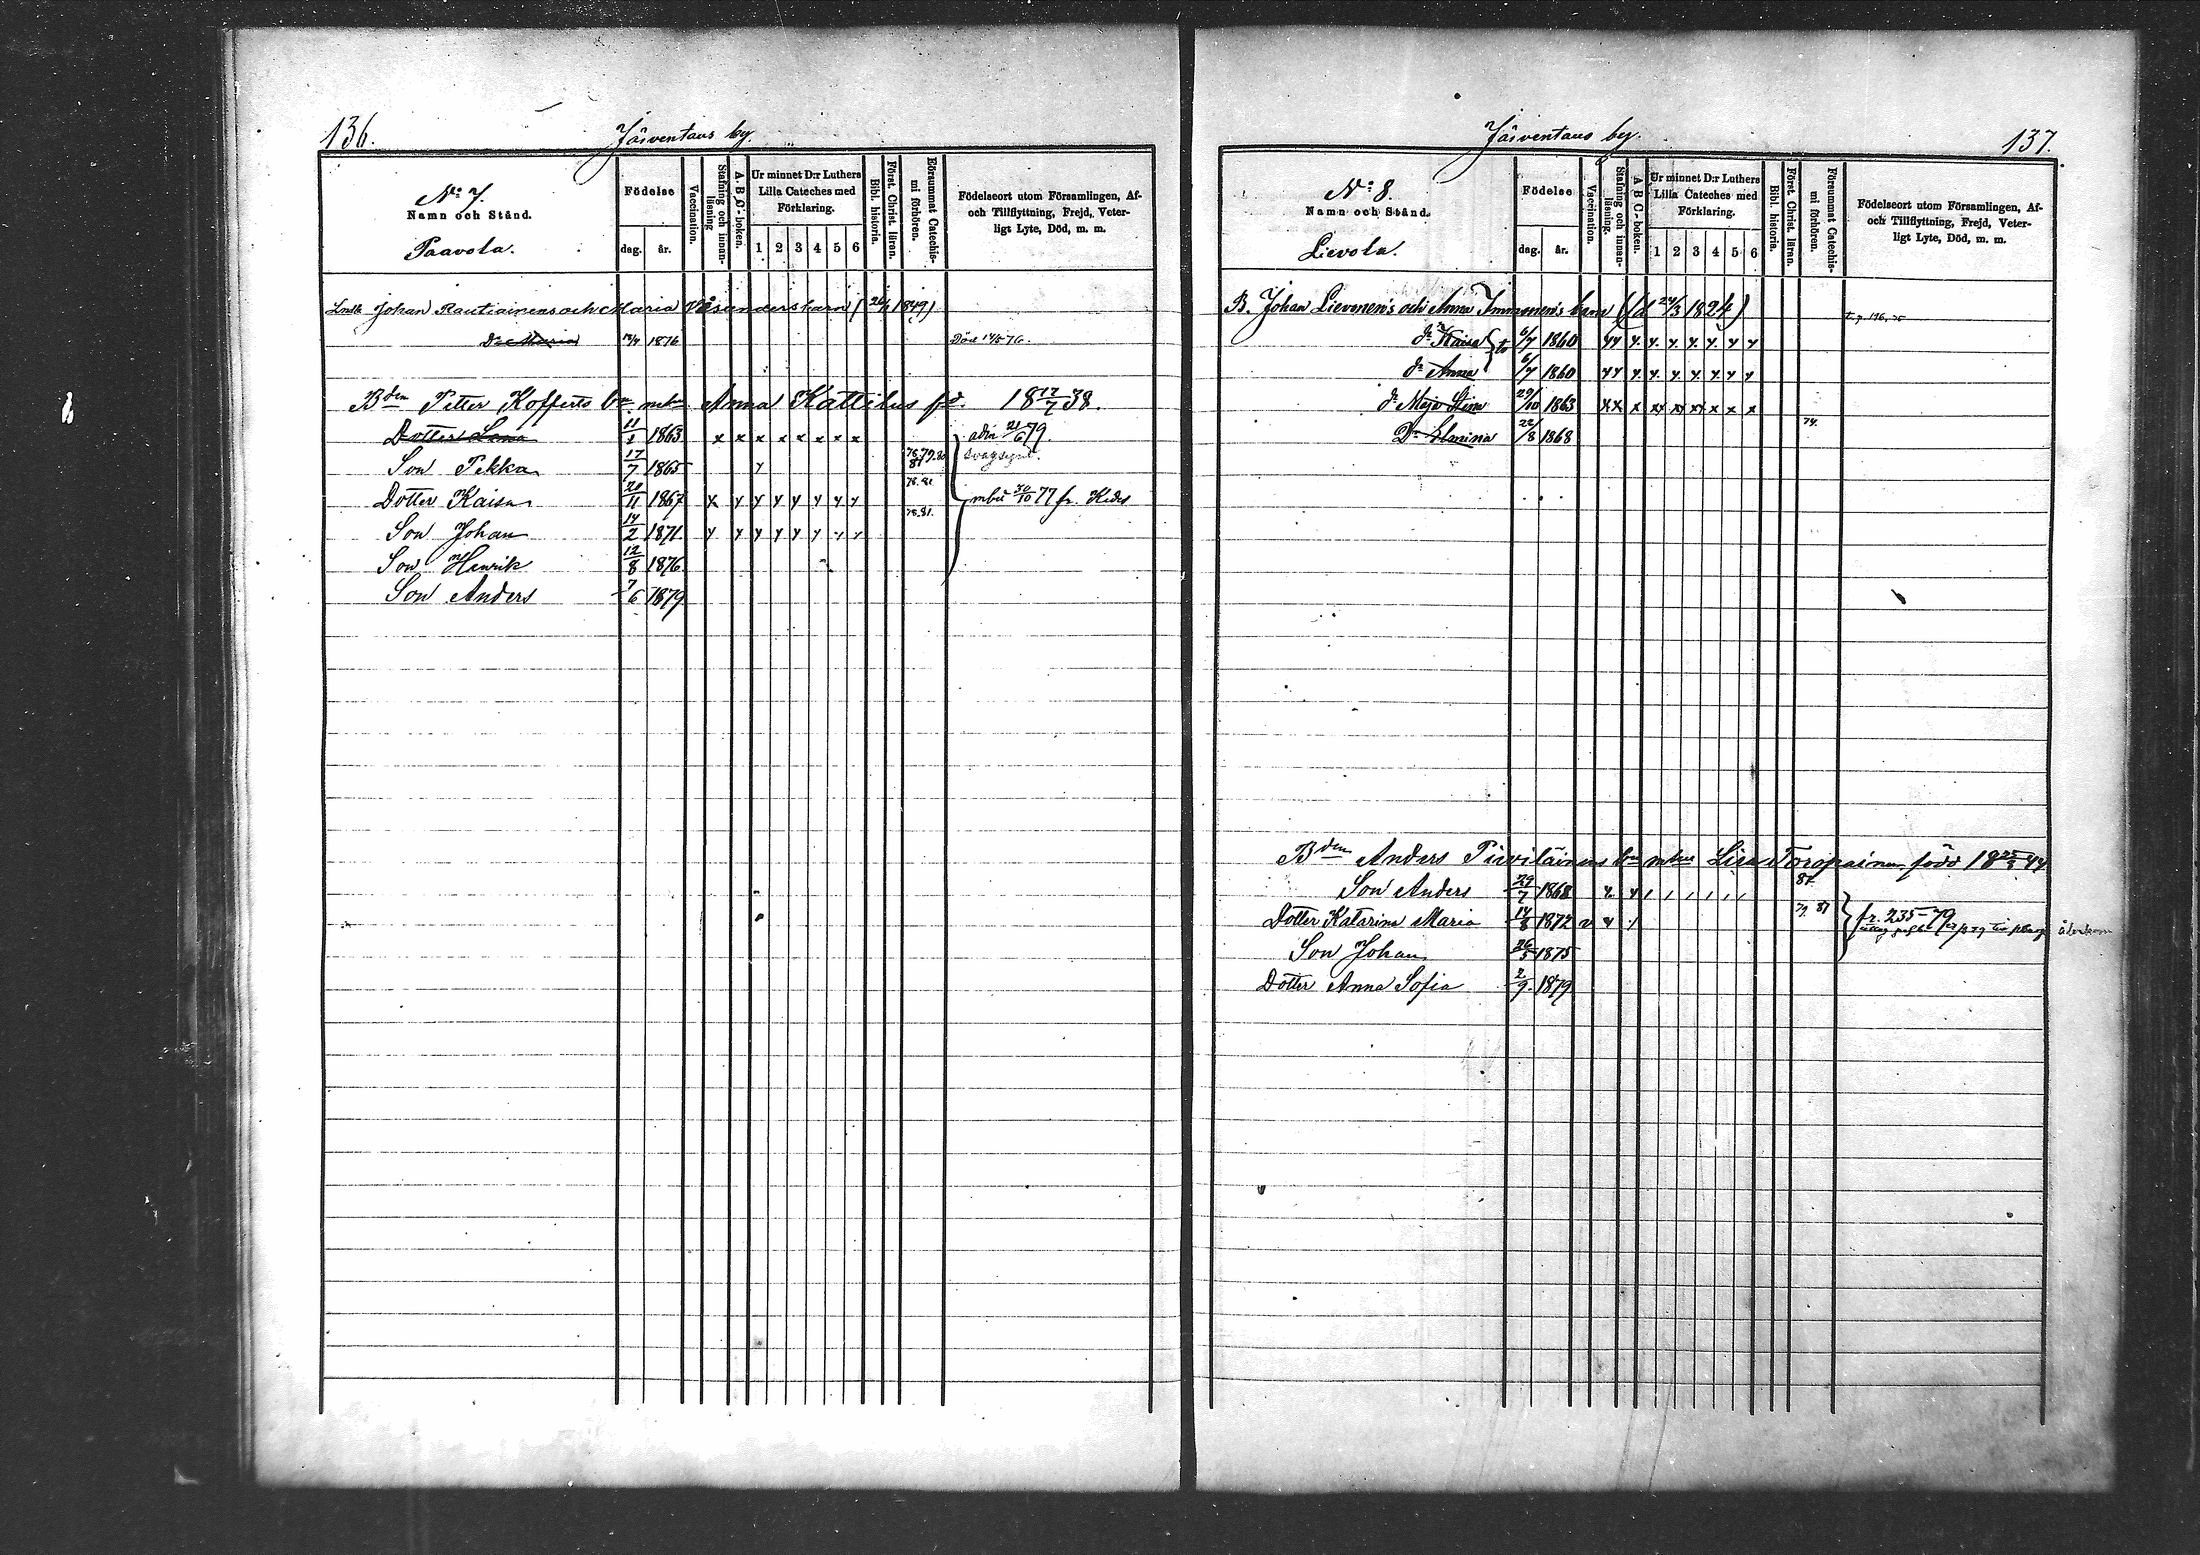 136.
Järventaus by.
N:o 7.
Namn och Stånd.
Paavola.
Födelse
dag. år.
Vaccination.
Stafning och innanläsning
A. B. C.-boken.
Ur minnet D:r Luthers Lilla Cateches med Förklaring.
1 2 3 4 5 6
Bibl. historia.
Först. Christ. läran.
Försummat Catechismi förhören.
Födelseort utom Församlingen, Af- och Tillflyttning, Frejd, Veterligt Lyte, Död, m. m.
Johan Rautiainens och Maria barn ( 1849)
Dr Maria 1876 Död 14/5 76.
Bden Petter Kofferts bn mhu Anna Kattilus fd. 18 12/7 38.
Dotter Lena 11/1 1863 x x x x x x x x adm 21/6 79.
Son Pekka 17/7 1865 y 78,79,80 81 svagsynt.
Dotter Kaisa 20/11 1867 x y y y y y y y 78.81 mbet 30/10 77 fr. Kides
Son Johan 14/2 1871 y y y y y y y y 78.81.
Son Henrik 12/8 1876
Son Anders 7/6 1879
137.
Järventaus by.
N:o 8.
Namn och Stånd.
Lievola.
Födelse
dag. år.
Vaccination.
Stafning och innanläsning.
A B C-boken.
Ur minnet D:r Luthers Lilla Cateches med Förklaring.
1 2 3 4 5 6
Bibl. historia.
Först. Christ. läran.
Försummat Catechismi förhören.
Födelseort utom Församlingen, Af- och Tillflyttning, Frejd, Veterligt Lyte, Död, m. m.
B. Johan Lievonen's och Anna Immonen's barn (fd 24/3 1824)
dr Kaisa 6/7 1860 yy y y y y y y y
dr Anna 6/7 1860 yy y y y y y y y
dr Maja Stina 29/10 1863 xx x xx xx xx x x x
Dr Elmina 22/8 1868 74.
Bden Anders Piiviläinens bn mhu Lisa Toropainen född 18 25/3 44
Son Anders 29/7 1868 y. y 81.
Dotter Katarina Maria 14/8 1872 v y 79. 81 fr. 235-79
återkom
Son Johan 26/5 1875
Dotter Anna Sofia 2/9. 1879